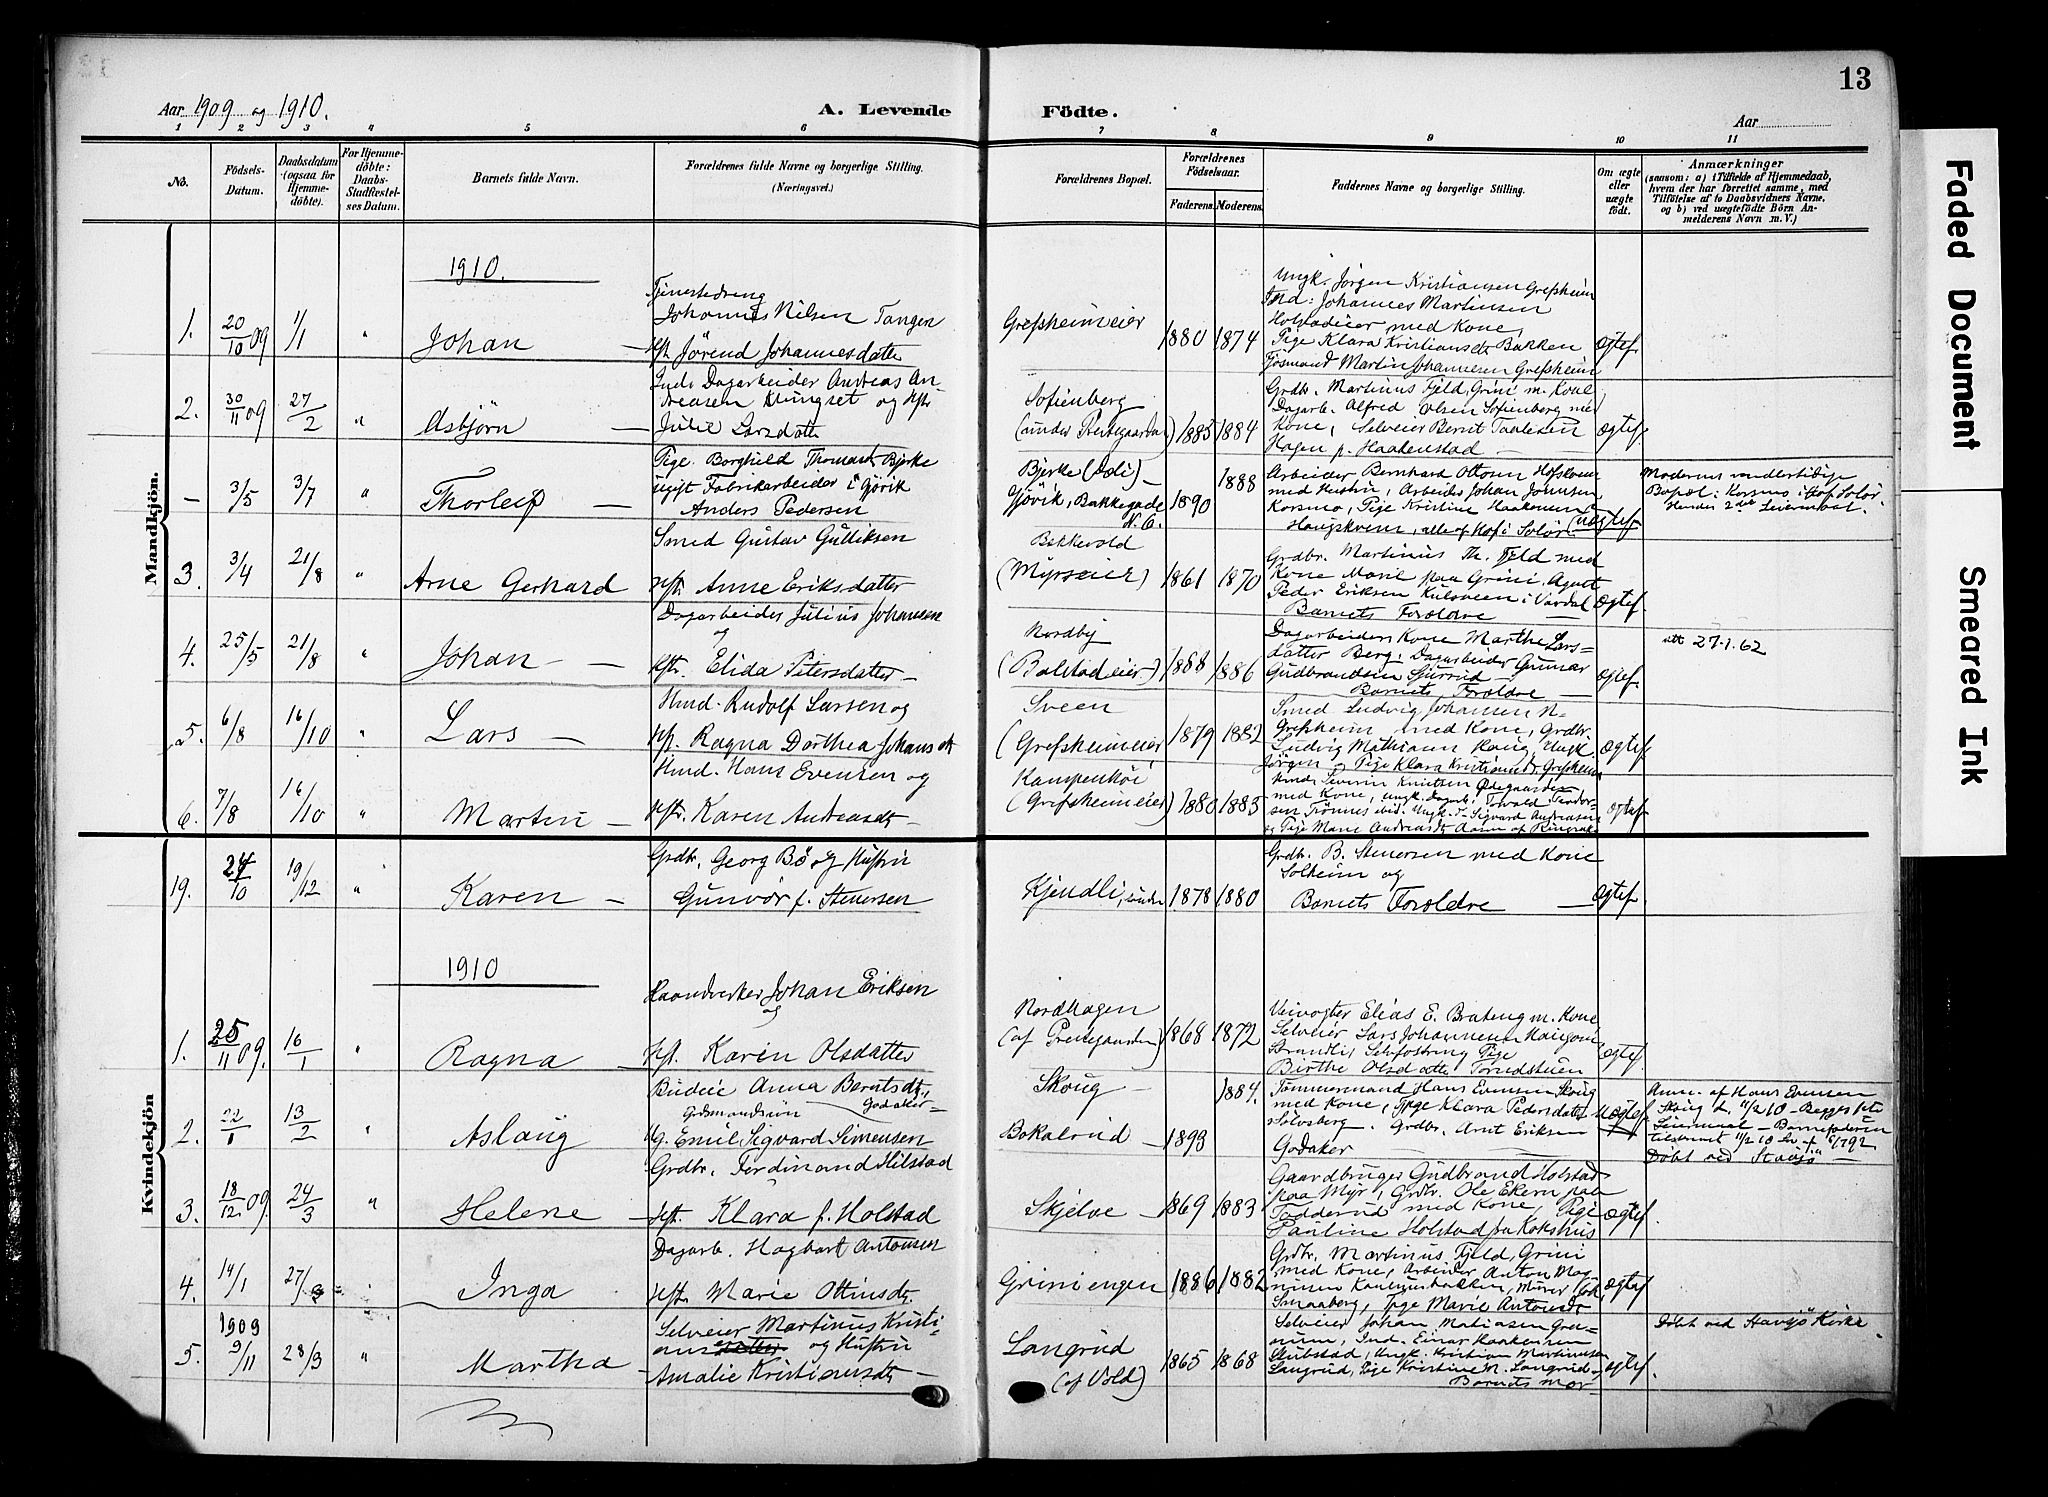 13
Aar 1909 og 1910.
A. Levende Födte.
Aar
1 2 3 4 5 6 7 8 9 10 11
No.
Födsels-Datum.
Daabsdatum (ogsaa for Hjemmedöbte).
For Hjemmedöbte: Daabs-Stadfæstelses Datum.
Barnets fulde Navn.
Forældrenes fulde Navne og borgerlige Stilling. (Næringsvei.)
Forældrenes Bopæl.
Forældrenes Födselsaar.
Faderens. Moderens.
Faddernes Navne og borgerlige Stilling.
Om ægte eller uægte födt.
Anmærkninger
(saasom: a) i Tilfælde af Hjemmedaab,
hvem der har forrettet samme, med
Tilföielse af to Daabsvidners Navne,
og b) ved uægtefödte Börn Anmelderens Navn m. V.)
Mandkjön.
1910.
1. 20/10 09 1/1 " Johan —
Tjenestedreng
Johannes Nilsen Tangen
Hst. Jörend Johannesdatter
Grefsheimeier 1880 1874
Ungk. Jörgen Kristiansen Grefsheim
Ind: Johannes Martinsen
Holstadeier med Kone,
Pige Klara Kristiansdt Bakken
Fjösmand Martin Johannesen Grefsheim
Ægtef.
2. 30/11 09 27/2 " Asbjörn —
Inds Dagarbeider Andreas Andreasen Klungset og Hstr
Julie Larsdatter
Sofienberg
(under Prestegaarden) 1883 1884
Grdbr. Martinus Fjeld, Grini m. Kone
Dagarb. Alfred Olsen Sofienberg med
Kone, Selveier Bernt Paulsen
Hagen p. Haakenstad —
Ægtef.
— 3/5 3/7 " Thorleif —
Pige Borghild Thomasdt Bjerke
ugift Fabrikarbeider i Gjövik
Anders Pedersen
Bjerke (Udi) —
Gjövik, Bakkegade
N. 6. 1890 1888
Arbeider Bernhard Ottosen Hofskvern
med Hustru, Arbeider Johan Jonnsen
Korsmo, Pige Kristine Haakensen
Haugskvern, alle af Hof i Solör
Uægtef
Moderens midlertidige
Bopæl: Korsmo i Hof Solör.
Hendes 2det Leiermaal.
3. 3/4 21/8 " Arne Gerhard
Smed Gustav Gulliksen
Hstr. Anne Eriksdatter
Bekkevold
(Myrseier) 1861 1870
Grdbr. Martinus Th. Fjeld med
Kone Maril paa Grini, Agent
Peder Eriksen Kulsveen i Vardal
Barnets Forældre
Ægtef.
4. 25/5 21/8 " Johan —
Dagarbeider Julius Johansen
og
Hstr. Elida Petersdatter —
Nordby
(Balstadeier) 1888 1886
Dagarbeiders Kone Marthe Larsdatter Berg, Dagarbeider Gunnar
Gudbrandsen Sjurrud —
Barnets Forældre —
Ægtef.
att 27.1.62
5. 6/8 16/10 " Lars —
Hmd. Rudolf Larsen og
Hst. Ragna Dorthea Johansdt
Sveen
(Grefsheimeier 1879 1882
Smed Ludvig Johansen N-
Grefsheim med Kone, Grdbr.
Ludvig Mathiasen Kong, Ungk.
Jörgen og Pige Klara Kristiansdt Grefsheim
Ægtef
6. 7/8 16/10 " Martin —
Hmd. Hans Evensen og
Hstr. Karen Andreasdt —
Kampenhöi
(Grefsheimeier) 1880 1883
Hmd. Severin Knutsen Ödegaarden
med Kone, ungk. Dagarb. Torvald Teodorsen Trönnes ibid. Ungk. Sigvard Andreasen
og Pige Marie Andreasdt Aasen af Ringsaker
Ægtef
Kvindekjön
19. 24/10 19/12 " Karen —
Grdbr. Georg Bö og Hustru
Gunvör f. Stenersen
Kjendli, 1878 1880
Grdbr. B. Stenersen med Kone
Solheim og
Barnets Forældre —
Ægtef.
1910
1. 25/11 09. 16/1 " Ragna —
Haandverker Johan Eriksen
og
Hst. Karen Olsdatter
Nordhagen
(af Prestegaarden) 1868 1872
Veivogter Elias E. Brateng m. Kone
Selveier Lars Johannesen
Strandli, Pige
Birthe Olsdatter
Ægtef.
2. 22/1 13/2 " Aslaug —
Budeie Anna Berntsdt,
Grdmandssön Godaker —
Ug. Emil Sigvard Simensen
Skoug —
Bokalrud — 1893 1884.
Tömmermand Hans Evensen Skoug
med Kone, Pige Klara Pedersdatter
Solvsberg. Grdbr. Arnt Eriksen
Godaker —
Uægtef
Anm. af Hans Evensen
Skoug d. 11/2 10 — Begges 1ste
Leiermaal — Barnefaderen
tilskrevet 11/2 10
Döbt ved Stavsjö —
3. 18/12 09. 24/3 " Helene —
Grdbr. Ferdinand Hilstad
Hst. Klara f. Holstad
Skjelve — 1869 1883
Gaardbruger Gudbrand Holstad
paa Myr, Grdbr. Ole Ekern paa
Fodderud med Kone, Pige
Pauline Holstad fra Kokshus
Ægtef.
4. 14/1 27/3 " Inga
Dagarb. Hagbart Antonsen
Hst. Marie Ottinsdt.
Griniengen 1886 1882
Grdbr. Martinus Fjeld, Grini
med Kone, Arbeider Anton Magnussen Kantumbakken, Murer
Smaaberg, Pige Marie Antonsdt
Ægtef.
5. 1909 9/11 28/3 " Martha —
Selveier Martinus Kristiansen og Hustru
Amalie Kristiansdt —
Langrud
(af Vold) 1865 1868
Selveier Johan Matiasen
Ind. Einar Haakensen
Skibstad, Ungk. Kristian Martinusen
Langrud, Pige Kristine M. Langrud og
Barnets Mor —
Ægtef.
Döbt ved Stavsjö Kirke.
Faded Document
Smeared Ink